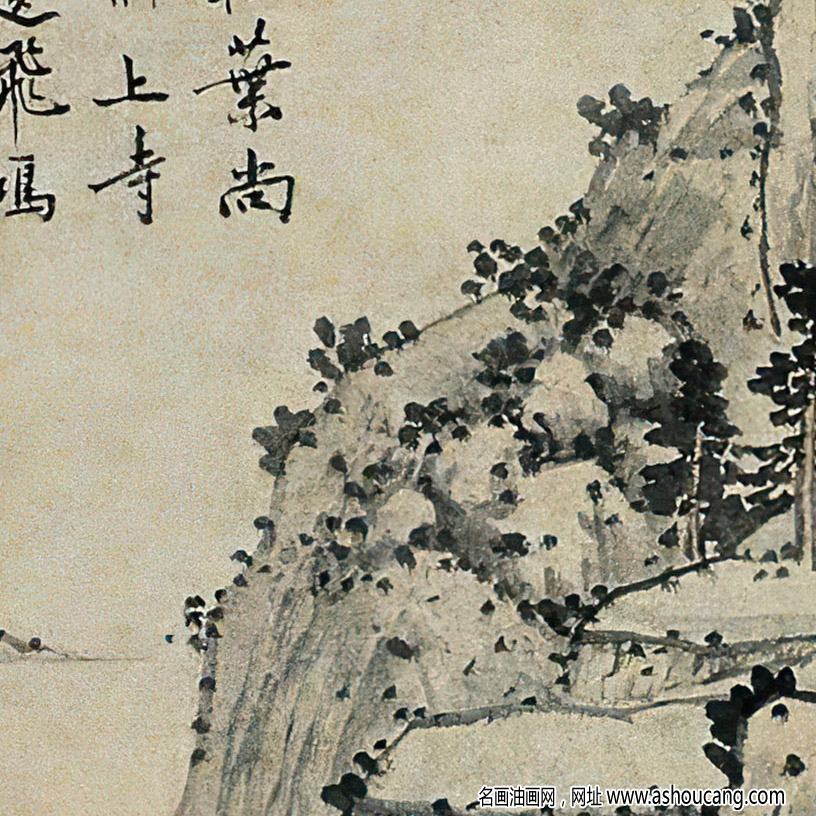 葉尚
上寺
飛鳴
名画油画网，网址 www.ashoucang.com